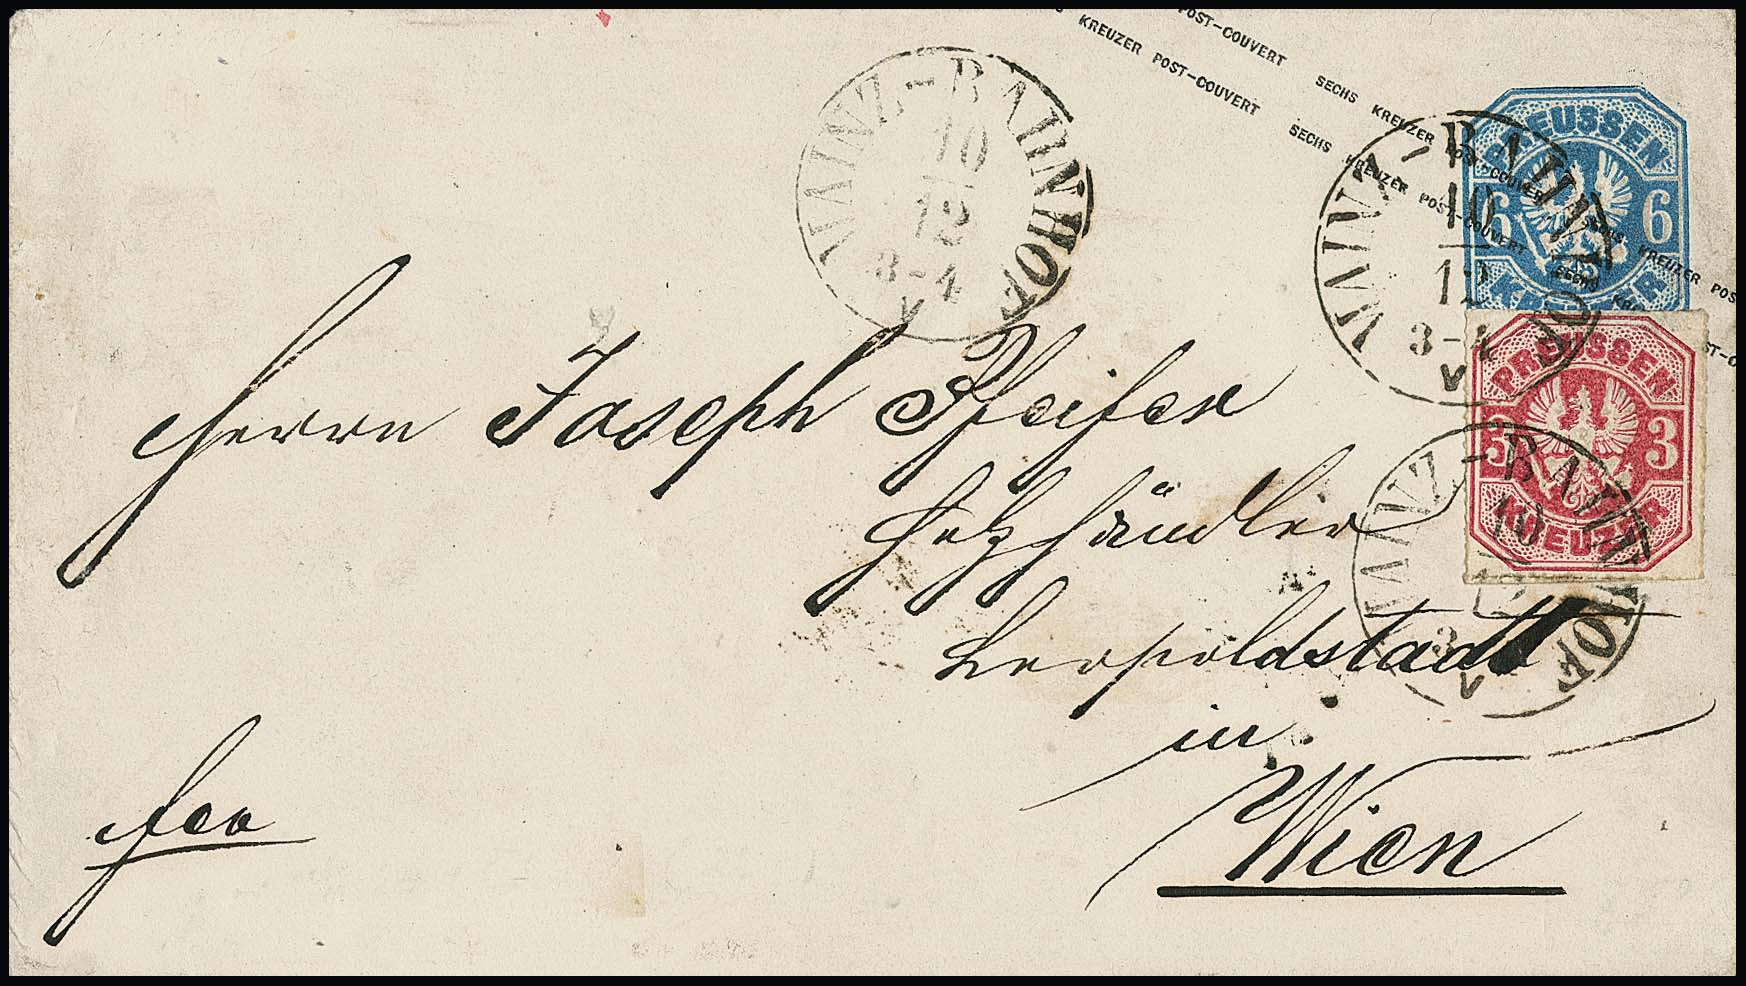 KREUZER POST-COUVERT SECHS KREUZER POST-COUVERT SECHS KREUZER POST-C
KREUZER POST-COUVERT SECHS KREUZER POST-COUVERT SECHS KREUZER POST-C
MAINZ-BAHNHOF
10
12
3-4
V
MAINZ-BAHNHOF
10
12
3-4
V
PREUSSEN
6 6
KREUZER
PREUSSEN
3 3
KREUZER
MAINZ-BAHNHOF
10
12
3
V
Herrn Joseph Pfeifer
Leopoldstadt
in
Wien
fco